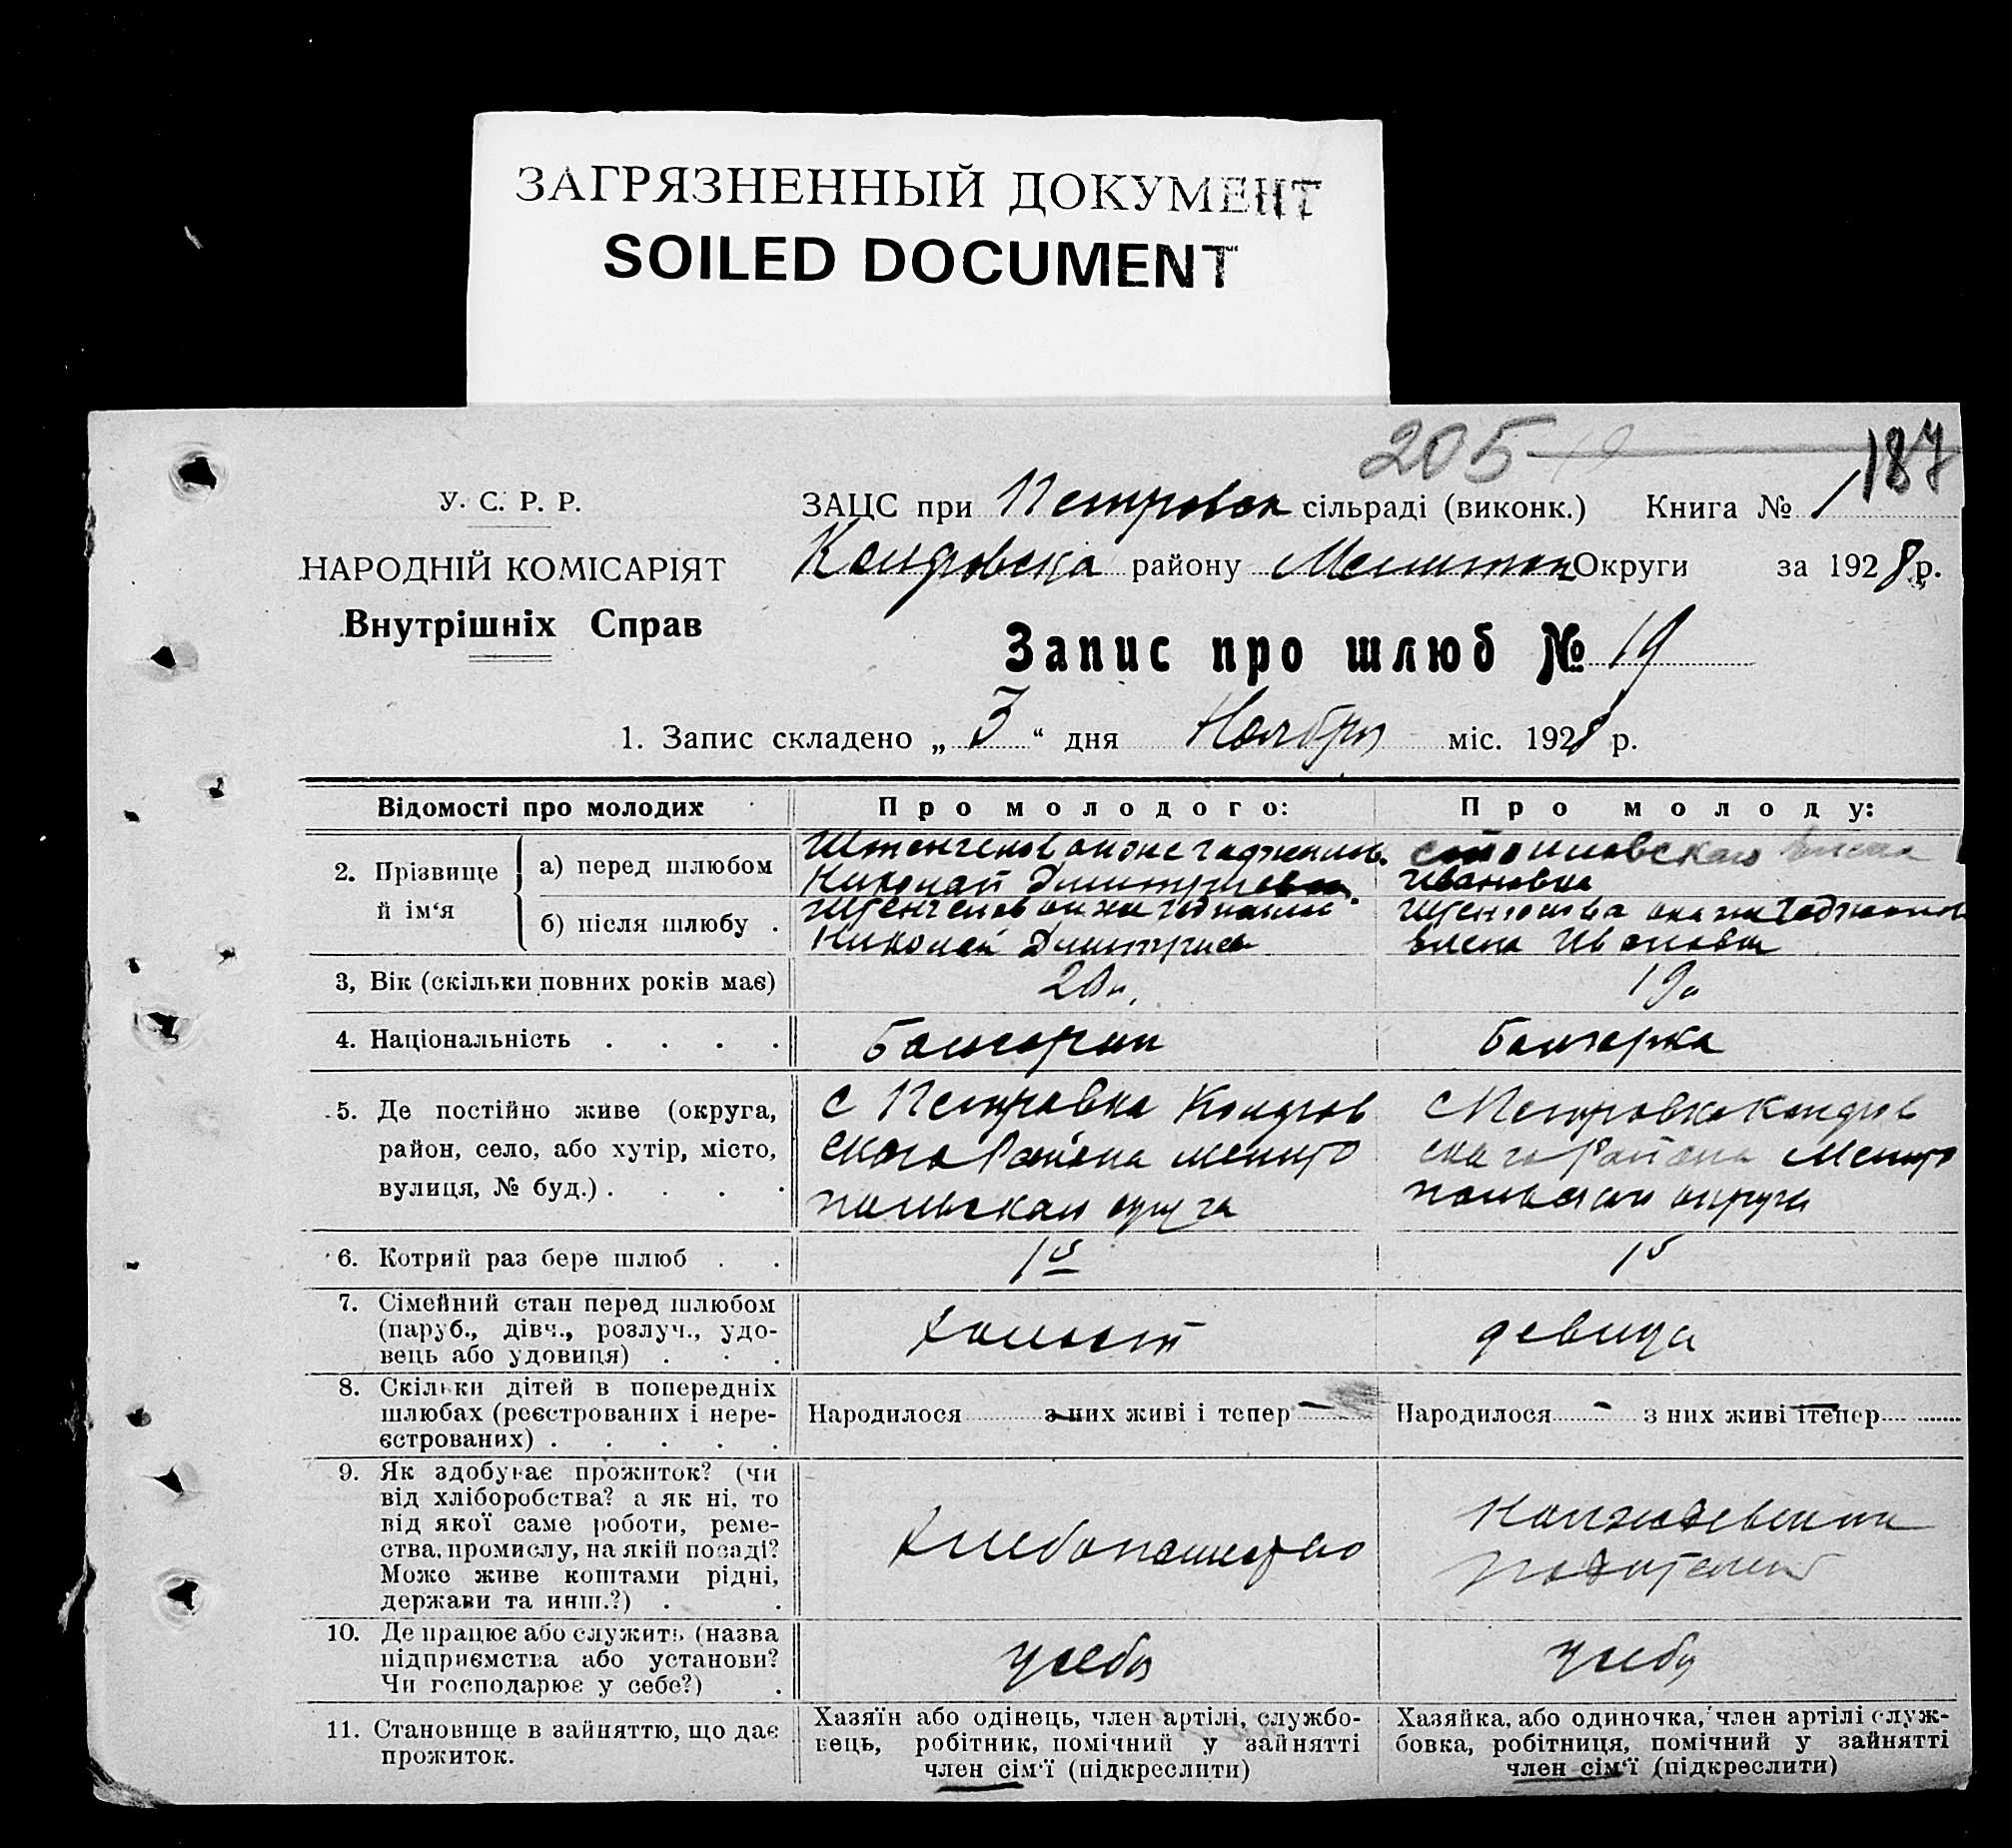 ЗАГРЯЗНЕННЫЙ ДОКУМЕНТ
SOILED DOCUMENT
205
187
У. С. Р. Р.
НАРОДНІЙ КОМІСАРІЯТ
Внутрішніх Справ
ЗАЦС при Петровск сільраді (виконк.) Книга № 1
району Округи за 1928 р.
Запис про шлюб № 19
1. Запис складено „ 3 “ дня Ноября міс. 1928 р.
Відомості про молодих
Про молодого:
Про молоду:
2. Прізвище й ім‘я
а) перед шлюбом
Николай
Ивановна
б) після шлюбу .
Николай
Елена Ивановна
3, Вік (скільки повних років має)
20
19
4. Національність . . . .
Болгарин
Болгарка
5. Де постійно живе (округа,
район, село, або хутір, місто,
вулиця, № буд.) . . . .
с Петровка Кондров
ского Района мелито
польская округа
с Петровка Кондров
ского Района Мелито
польской округи
6. Котрий раз бере шлюб . .
1й
1й
7. Сімейний стан перед шлюбом
(паруб., дівч., розлуч., удо-
вець або удовиця) . . .
холост
девица
8. Скільки дітей в попередніх
шлюбах (реєстрованих і нере-
єстрованих) . . . . .
Народилося з них живі і тепер —
Народилося - з них живі і тепер
9. Як здобуває прожиток? (чи
від хліборобства? а як ні, то
від якої саме роботи, реме-
ства, промислу, на якій посаді?
Може живе коштами рідні,
держави та инш.?) . .
хлебопашество
на иждевении
родителей
10. Де працює або служить (назва
підприємства або установи?
Чи господарює у себе?) .
у себя
у себя
11. Становище в зайняттю, що дає
прожиток.
Хазяїн або одінець, член артілі, службо-
вець, робітник, помічний у зайнятті
член сім‘ї (підкреслити)
Хазяйка, або одиночка, член артілі служ-
бовка, робітниця, помічний у зайнятті
член сім‘ї (підкреслити)